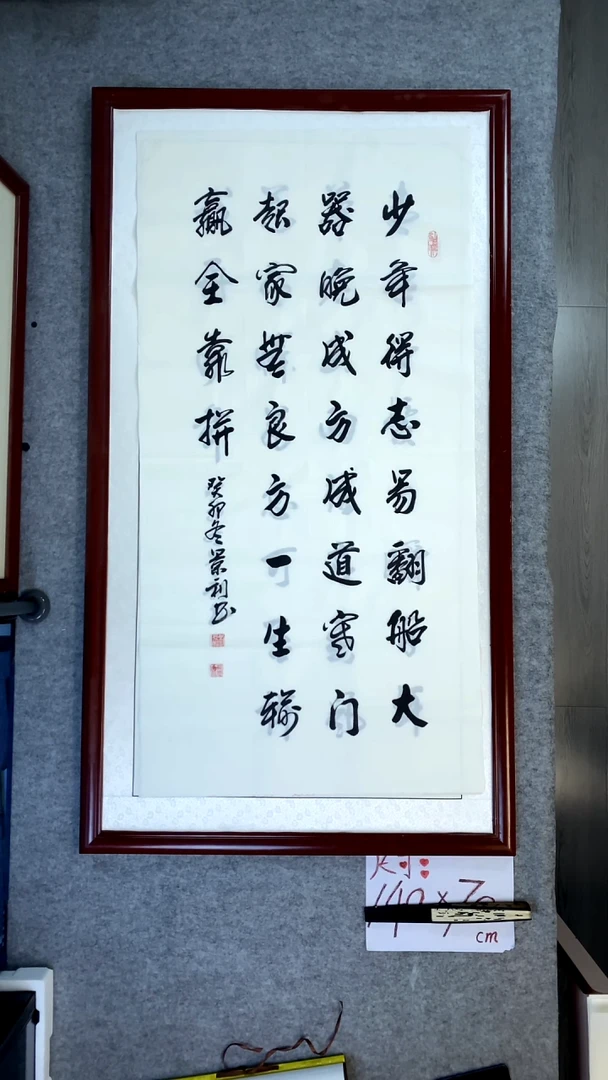 少年得志易翻船大
器晚成方成道寒门
起家无良方一生输
赢全靠拼
癸卯冬景利书
尺寸:
140×70
cm